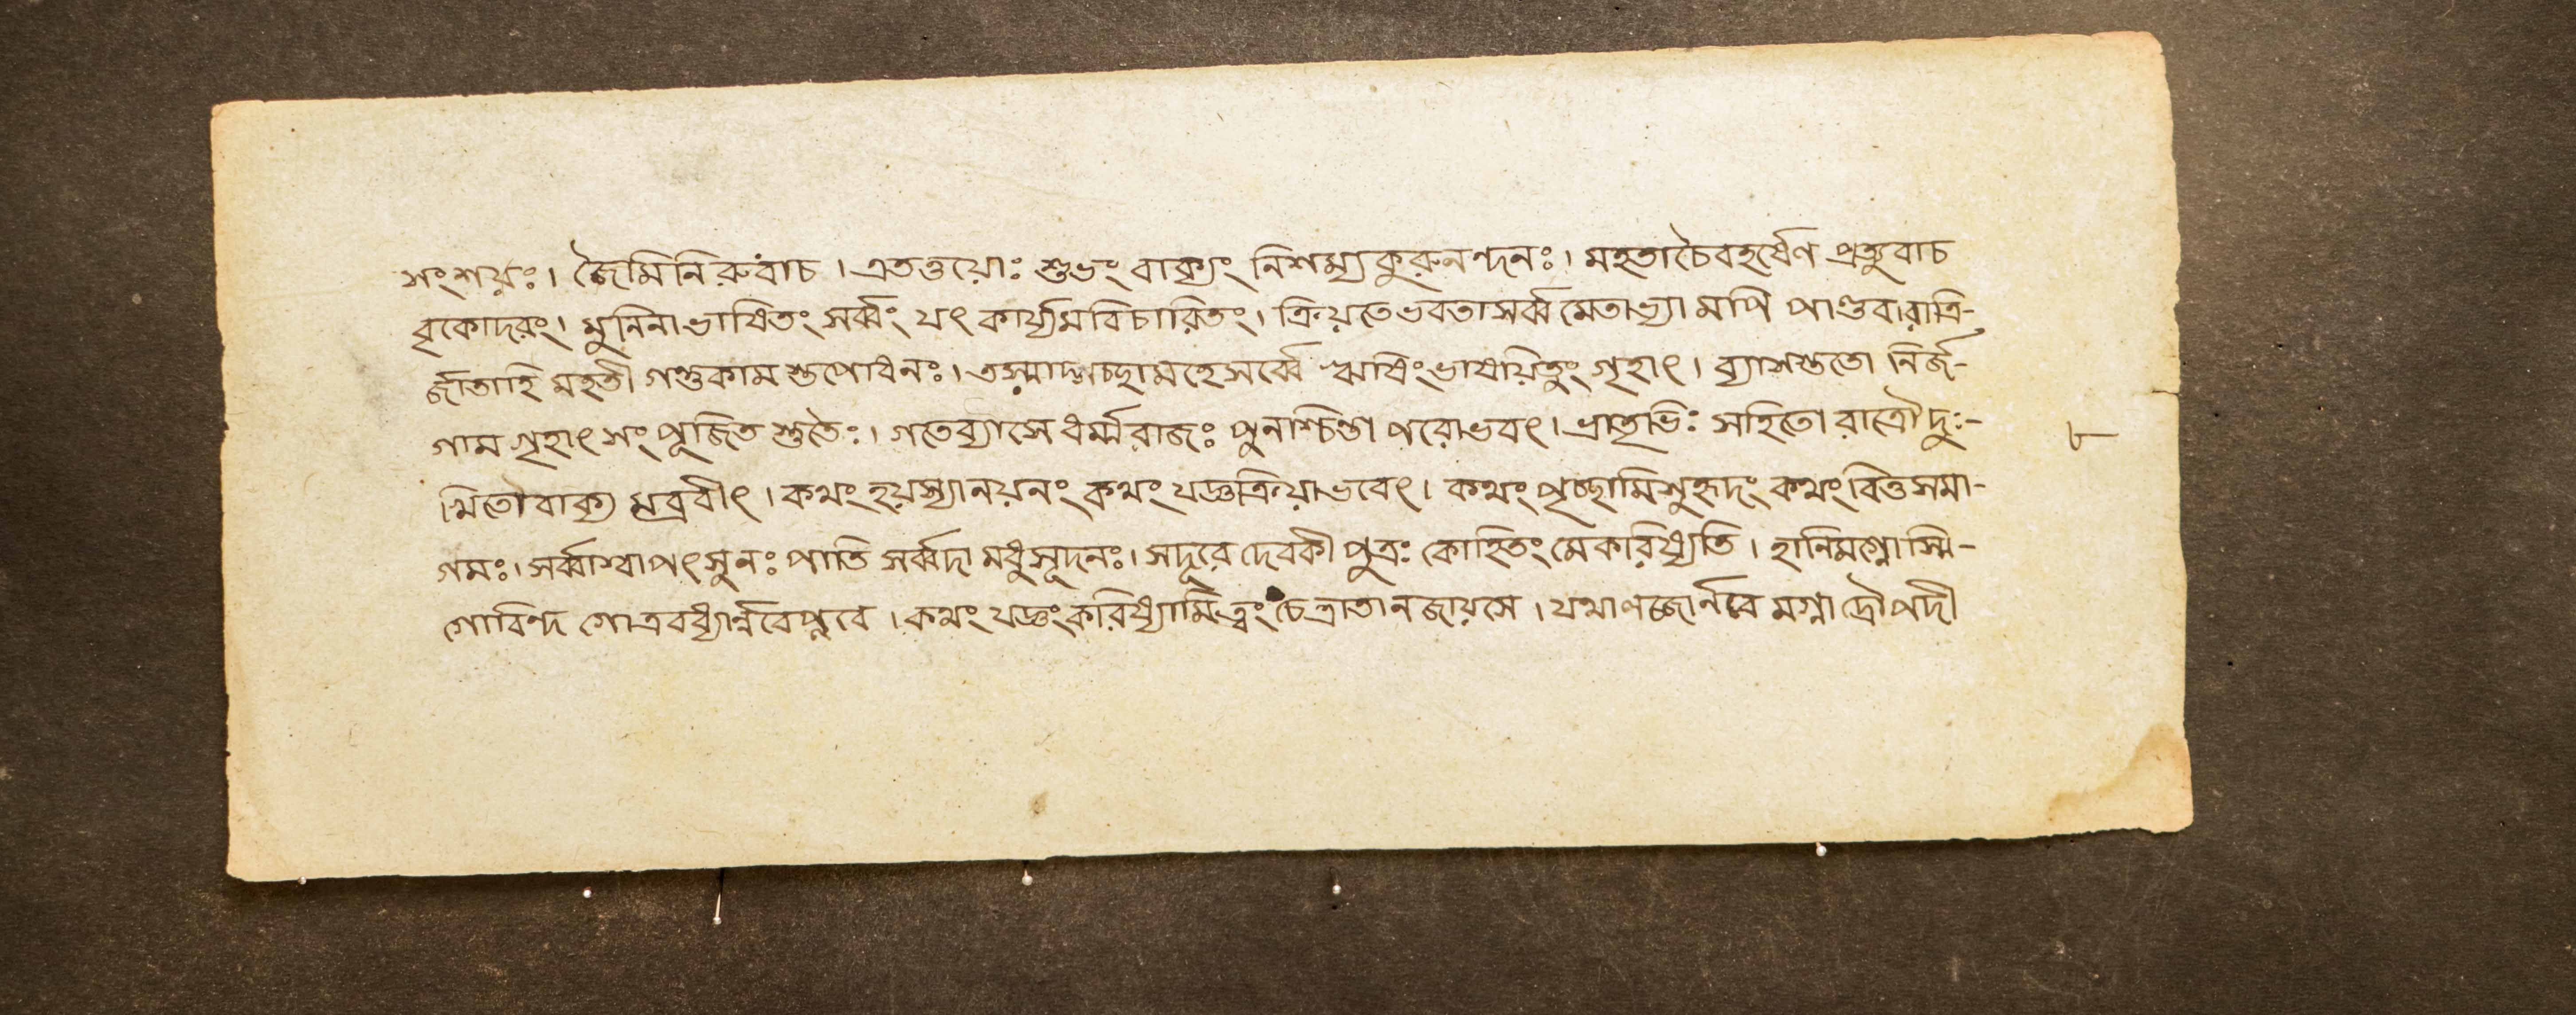 সংশয়ঃ। জৈমিনিরুবাচ। এতত্তয়োঃ শুভং বাক্যং নিশম্যকুরুনন্দনঃ। মহতাচৈবহর্ষেণ প্রত্যুবাচ
বৃকোদরং। মুনিনাভাষিতং সর্ব্বং যৎ কার্য্যমবিচারিতং। ক্রিয়তেভবতাসর্ব্বমেতাভ্যামপি পাণ্ডব।রাত্রি-
র্জাতাহি মহতী গন্তুকামস্তপোধনঃ। তস্মাদ্গচ্ছামহেসর্ব্বে ঋষিংভাষয়িতুং গৃহাৎ। ব্যাসস্ততো নির্জ-
গাম গৃহাৎ সংপূজিতস্তুতৈঃ। গতেব্যাসে ধর্ম্মরাজঃ পুনশ্চিন্তা পরোভবৎ। ভ্রাতৃভিঃ সহিতো রাত্রৌদুঃ-
খিতোবাক্যমব্রবীৎ। কথংহয়স্যানয়নং কথংযজ্ঞক্রিয়াভবেৎ। কথংপৃচ্ছামিসুহৃদং কথংবিত্তসমা-
গমঃ। সর্ব্বাস্বাপৎসুনঃ পাতি সর্ব্বদা মধুসূদনঃ। সদূরে দেবকীপুত্রঃ কোহিতং মেকরিষ্যতি। হানিমগ্নোস্মি-
গোবিন্দ গোত্রবধ্যার্ন্নবেপ্লবে। কথংযজ্ঞংকরিষ্যামিত্বংচেত্রাতানজায়সে। যথাণজোর্নবে মগ্না দ্রৌপদী
৮